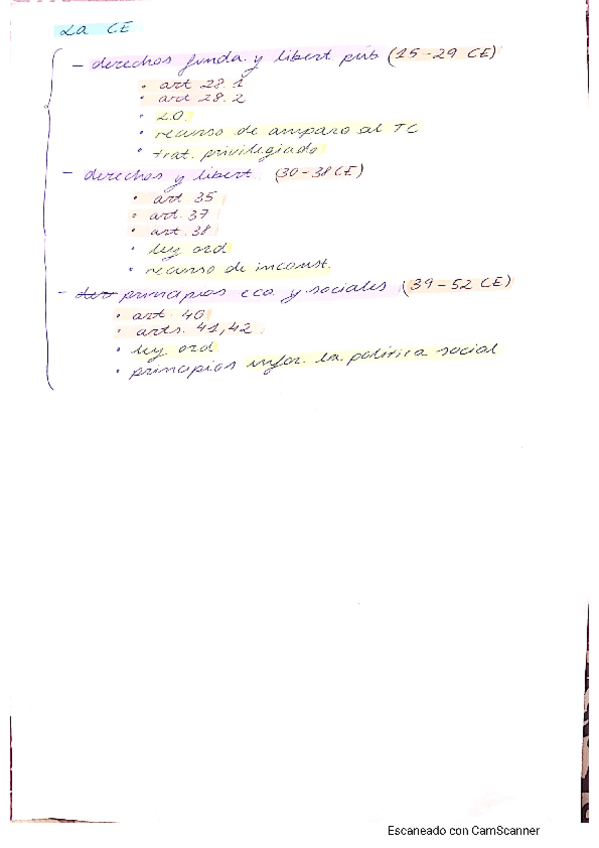 La CE
- derechos funda. y libert púb (15-29 CE)
• art 28.1
• art 28.2
• L.O.
• recurso de amparo al TC
• trat. privilegiado
- derechos y libert. (30-38 CE)
• art 35
• art. 37
• art. 38
• ley ord
• recurso de inconst.
- der principios eco. y sociales (39-52 CE)
• art. 40
• arts. 41, 42
• ley ord
• principios infor. la política social
Escaneado con CamScanner